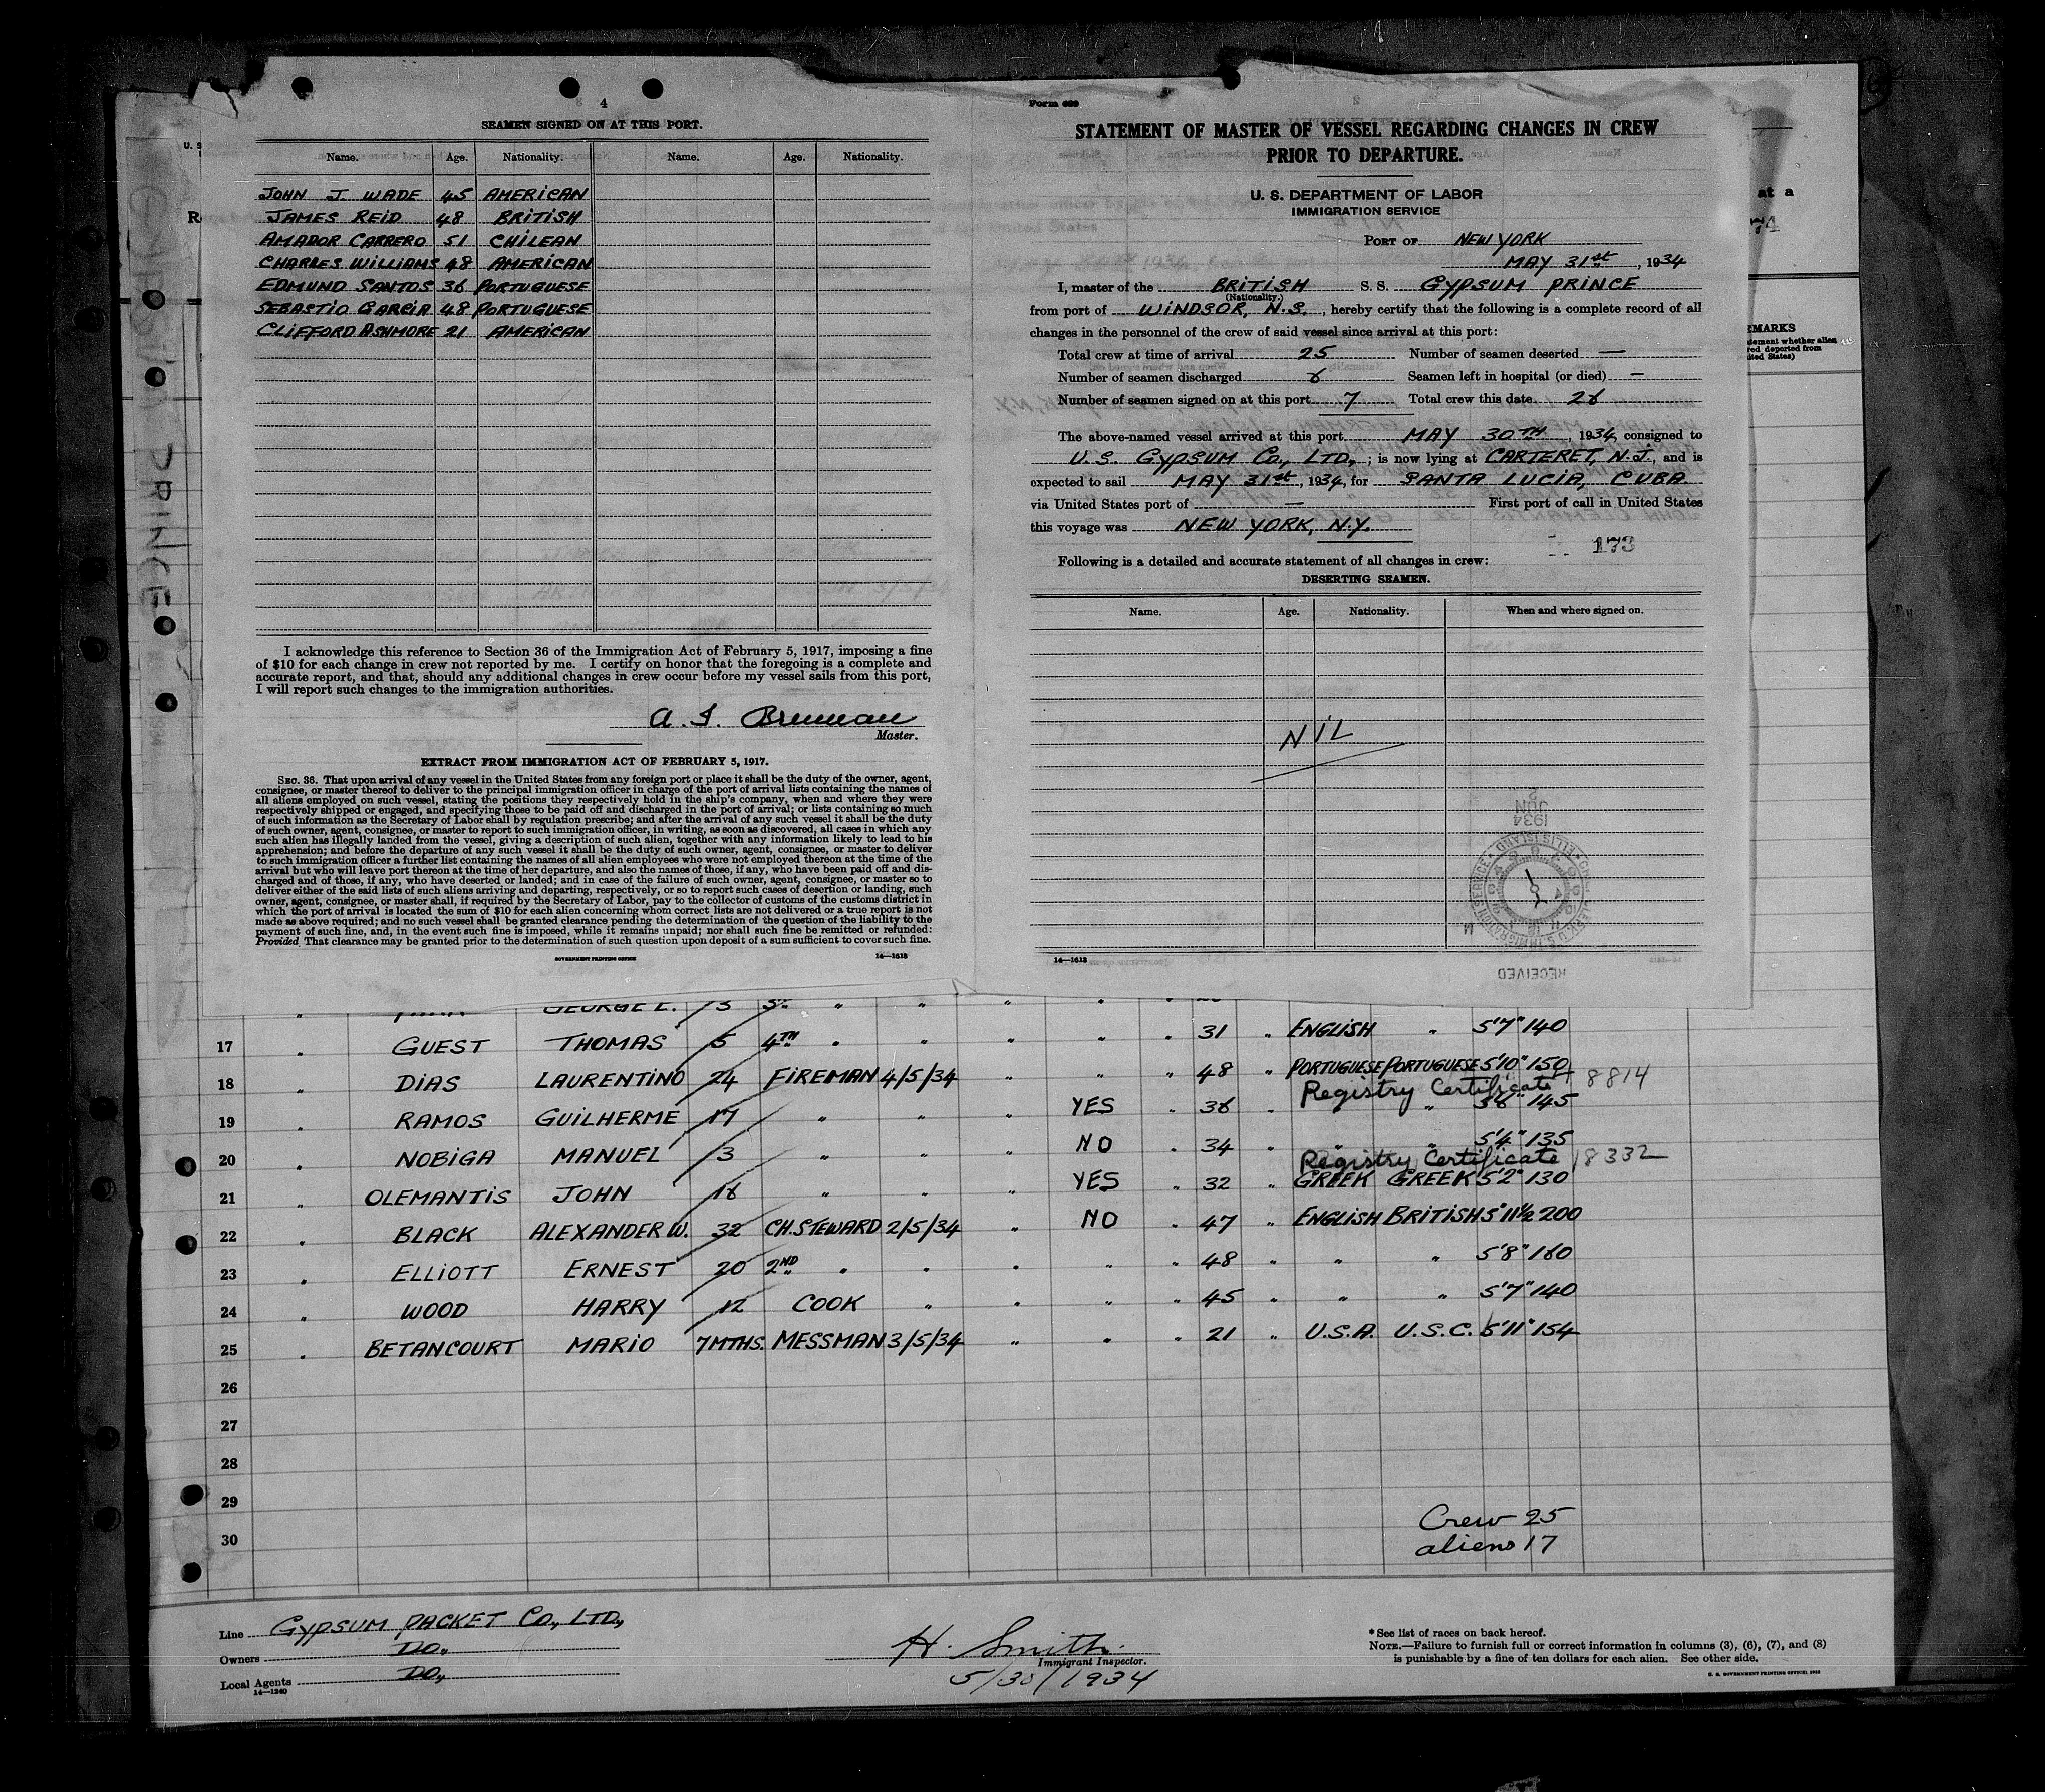 4
SEAMEN SIGNED ON AT THIS PORT.
Name. Age. Nationality. Name. Age. Nationality.
JOHN J. WADE 45 AMERICAN
JAMES REID 48 BRITISH
AMADOR CARRERO 51 CHILEAN
CHARLES WILLIAMS 48 AMERICAN
EDMUND SANTOS 36 PORTUGUESE
SEBASTIO GARCIA 48 PORTUGUESE
CLIFFORD ASHMORE 21 AMERICAN
I acknowledge this reference to Section 36 of the Immigration Act of February 5, 1917, imposing a fine
of $10 for each change in crew not reported by me. I certify on honor that the foregoing is a complete and
accurate report, and that, should any additional changes in crew occur before my vessel sails from this port,
I will report such changes to the immigration authorities.
A. I. Brennan
Master.
EXTRACT FROM IMMIGRATION ACT OF FEBRUARY 5, 1917.
SEC. 36. That upon arrival of any vessel in the United States from any foreign port or place it shall be the duty of the owner, agent,
consignee, or master thereof to deliver to the principal immigration officer in charge of the port of arrival lists containing the names of
all aliens employed on such vessel, stating the positions they respectively hold in the ship's company, when and where they were
respectively shipped or engaged, and specifying those to be paid off and discharged in the port of arrival; or lists containing so much
of such information as the Secretary of Labor shall by regulation prescribe; and after the arrival of any such vessel it shall be the duty
of such owner, agent, consignee, or master to report to such immigration officer, in writing, as soon as discovered, all cases in which any
such alien has illegally landed from the vessel, giving a description of such alien, together with any information likely to lead to his
apprehension; and before the departure of any such vessel it shall be the duty of such owner, agent, consignee, or master to deliver
to such immigration officer a further list containing the names of all alien employees who were not employed thereon at the time of the
arrival but who will leave port thereon at the time of her departure, and also the names of those, if any, who have been paid off and dis-
charged and of those, if any, who have deserted or landed; and in case of the failure of such owner, agent, consignee, or master so to
deliver either of the said lists of such aliens arriving and departing, respectively, or so to report such cases of desertion or landing, such
owner, agent, consignee, or master shall, if required by the Secretary of Labor, pay to the collector of customs of the customs district in
which the port of arrival is located the sum of $10 for each alien concerning whom correct lists are not delivered or a true report is not
made as above required; and no such vessel shall be granted clearance pending the determination of the question of the liability to the
payment of such fine, and, in the event such fine is imposed, while it remains unpaid; nor shall such fine be remitted or refunded:
Provided, That clearance may be granted prior to the determination of such question upon deposit of a sum sufficient to cover such fine.
GOVERNMENT PRINTING OFFICE 14—1613
Form 689
STATEMENT OF MASTER OF VESSEL REGARDING CHANGES IN CREW
PRIOR TO DEPARTURE.
U. S. DEPARTMENT OF LABOR
IMMIGRATION SERVICE
PORT OF NEW YORK
MAY 31st, 1934
I, master of the BRITISH S. S. GYPSUM PRINCE
(Nationality.)
from port of WINDSOR, N.S., hereby certify that the following is a complete record of all
changes in the personnel of the crew of said vessel since arrival at this port:
Total crew at time of arrival 25 Number of seamen deserted —
Number of seamen discharged 6 Seamen left in hospital (or died) —
Number of seamen signed on at this port 7 Total crew this date 26
The above-named vessel arrived at this port MAY 30TH, 1934, consigned to
U. S. GYPSUM CO., LTD.,; is now lying at CARTERET, N.J., and is
expected to sail MAY 31st, 1934, for SANTA LUCIA, CUBA
via United States port of — First port of call in United States
this voyage was NEW YORK, N.Y.
173
Following is a detailed and accurate statement of all changes in crew:
DESERTING SEAMEN.
Name. Age. Nationality. When and where signed on.
NIL
1934
JUN
2
ELLIS ISLAND
RECEIVED
14—1613
U. S
R
at a
74
EMARKS
tement whether alien
red deported from
ited States)
GYPSUM PRINCE
GEORGE E. 13 3rd " " " "
17 " GUEST THOMAS 5 4TH " " " " " 31 " ENGLISH " 5'7" 140
18 " DIAS LAURENTINO 24 FIREMAN 4/5/34 " " " 48 " PORTUGUESE PORTUGUESE 5'10" 150
Registry Certificate # 8814
19 " RAMOS GUILHERME 17 " " " YES " 36 " " " 5'6" 145
20 " NOBIGA MANUEL 3 " " " NO " 34 " " " 5'4" 135
Registry Certificate 18332
21 " OLEMANTIS JOHN 16 " " " YES " 32 " GREEK GREEK 5'2" 130
22 " BLACK ALEXANDER W. 32 CH. STEWARD 2/5/34 " NO " 47 " ENGLISH BRITISH 5'11½ 200
23 " ELLIOTT ERNEST 20 2ND " " " " " 48 " " " 5'8" 160
24 " WOOD HARRY 12 COOK " " " " 45 " " " 5'7" 140
25 " BETANCOURT MARIO 7 MTHS. MESSMAN 3/5/34 " " " 21 " U.S.A. U.S.C. 5'11" 154
26
27
28
29
30
Crew 25
aliens 17
Line GYPSUM PACKET CO., LTD.,
Owners DO.,
Local Agents DO.,
14—1240
H. Smith
Immigrant Inspector.
5/30/1934
* See list of races on back hereof.
NOTE.—Failure to furnish full or correct information in columns (3), (6), (7), and (8)
is punishable by a fine of ten dollars for each alien. See other side.
U. S. GOVERNMENT PRINTING OFFICE: 1932